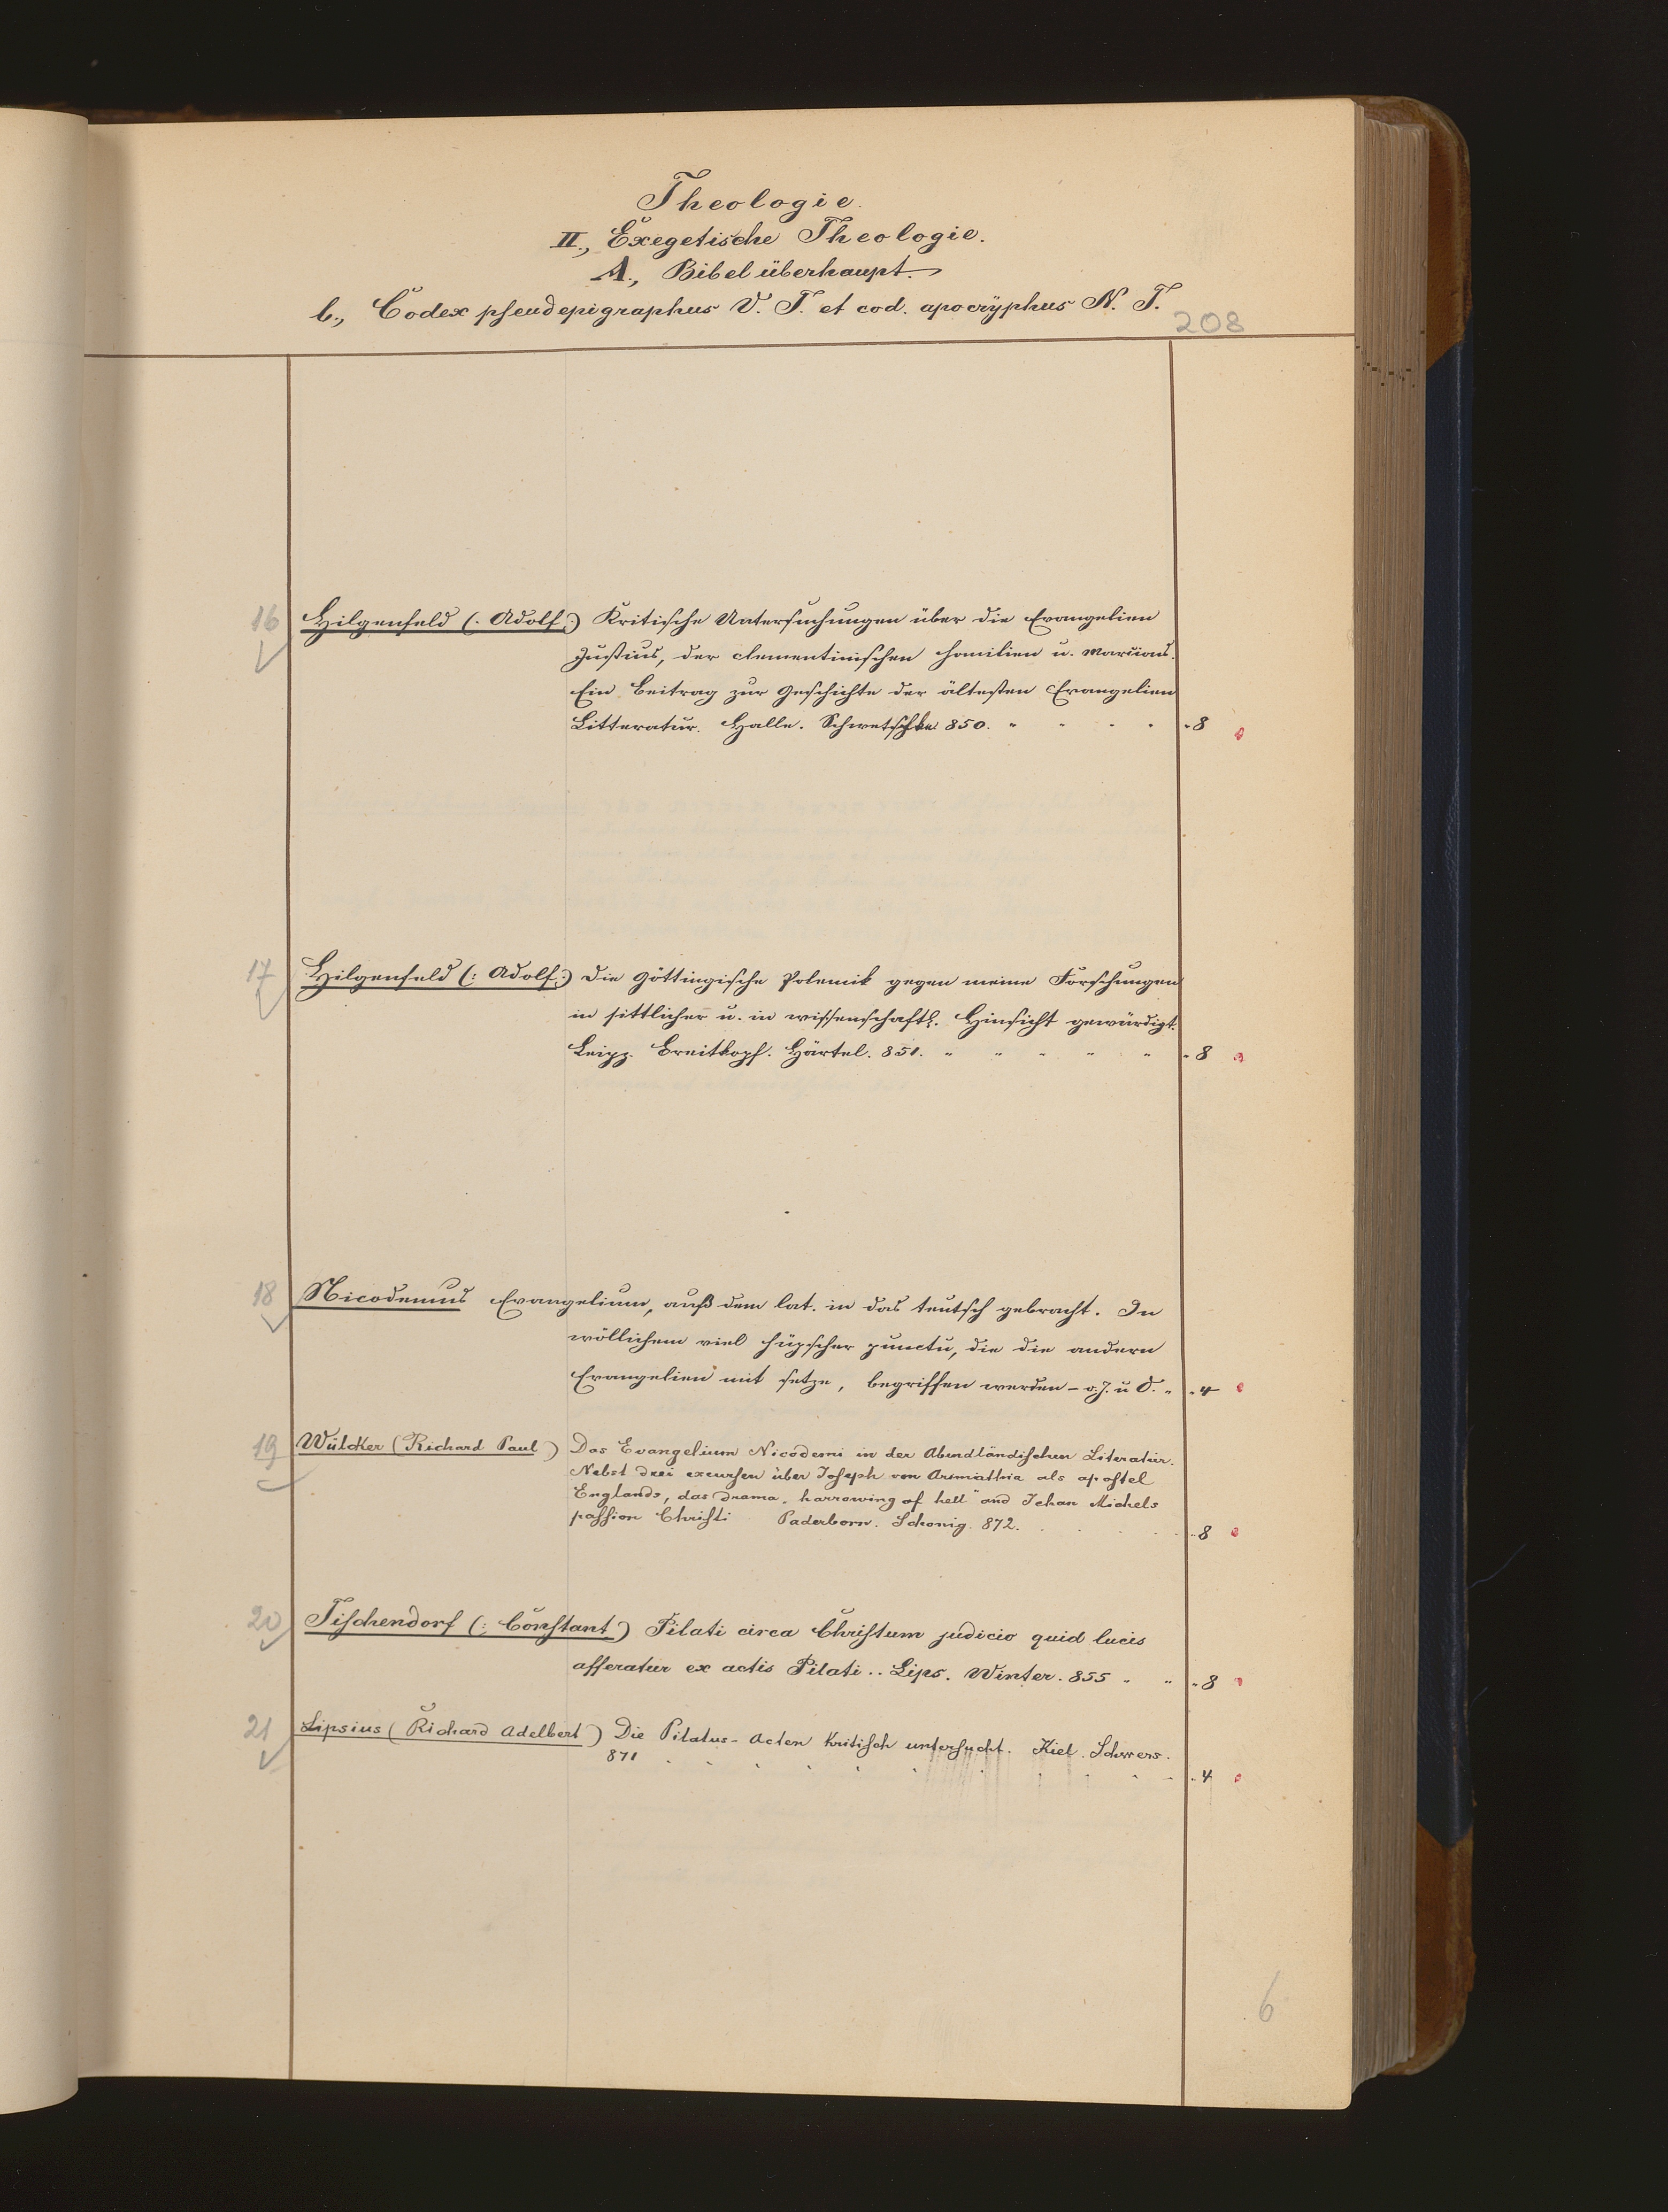 Theologie.
II., Exegetische Theologie.
A., Bibel überhaupt.
b., Codex pseudepigraphus V. T. et cod. apocryphus N. T.
208
16 Hilgenfeld (: Adolf :) Kritische Untersuchungen über die Evangelien
Justins, der clementinischen Homilien u. Marcions.
Ein Beitrag zur Geschichte der ältesten Evangelien
Litteratur. Halle. Schwetschke 850. " " " " " 8
17 Hilgenfeld (: Adolf :) Die Göttingische Polemik gegen meine Forschungen
in sittlicher u. in wissenschaftl. Hinsicht gewürdigt.
Leipz. Breitkopf. Härtel. 851. " " " " " " 8
18 Nicodemus Evangelium, auß dem lat. in das teutsch gebracht. In
wöllichem viel hüpscher punctu, die die andern
Evangelien nit setze, begriffen werden - o. J. u O. " " 4
19 Wülcker (Richard Paul) Das Evangelium Nicodemi in der Abendländischen Literatur.
Nebst drei excursen über Joseph von Arimathia als apostel
Englands, das drama „harrowing of hell" und Jehan Michels
passion Christi Paderborn. Schonig. 872. . . . . " 8
20 Tischendorf (: Constant) Pilati circa Christum judicio quid lucis
afferatur ex actis Pilati .. Lips. Winter. 855 " " " 8
21 Lipsius (Richard Adelbert) Die Pilatus-Acten kritisch untersucht. Kiel. Schwers.
871 . . . . . . . . . . " 4
6